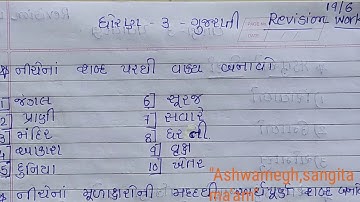 19/6
ધોરણ - ૩ - ગુજરાતી Revision work
* નીચેનાં શબ્દ પરથી વાક્ય બનાવો
1 જંગલ 6) સૂરજ
2 પ્રાણી 7) સવારે
3 મંદિર 8) ઘર ની
4 આકાશ 9) વૃક્ષ
5 દુનિયા 10) ખેતર
"Ashwamegh,sangita
ma'am
* નીચેનાં મૂળાક્ષરોની મદદથી અર્થપૂર્ણ શબ્દ બનાવો